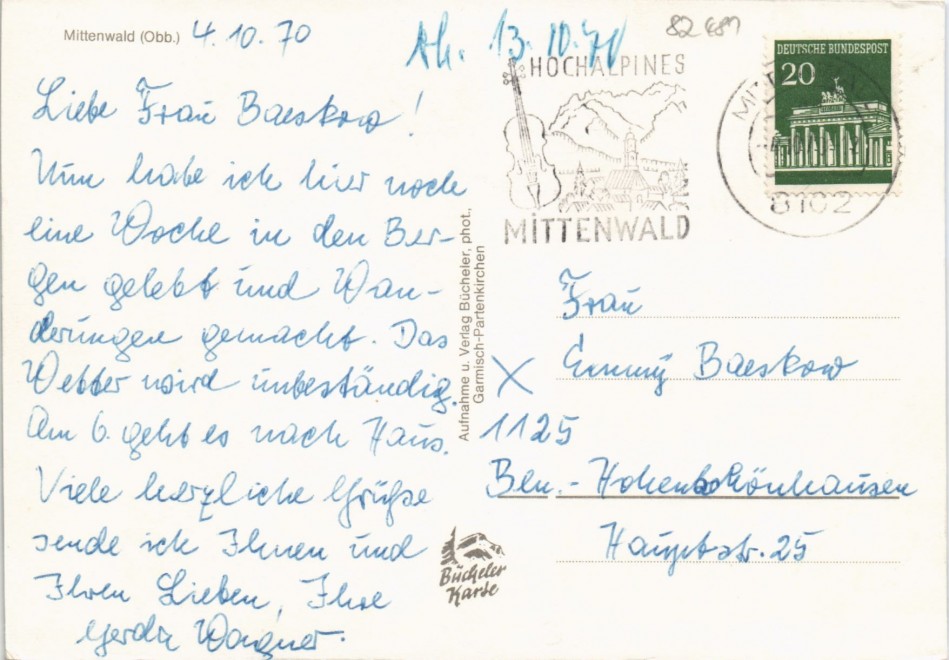 Mittenwald (Obb.) 4.10.70
Liebe Frau Baeskow!
Nun habe ich hier noch
eine Woche in den Ber-
gen gelebt und Wan-
derungen gemacht. Das
Wetter wird unbeständig.
Am 6. geht es nach Haus.
Viele herzliche Grüße
sende ich Ihnen und
Ihren Lieben, Ihre
Gerda Wagner.
Ab. 13.10.70
82489
HOCHALPINES
MITTENWALD
DEUTSCHE BUNDESPOST
20
8102
Aufnahme u. Verlag Bücheler, phot.,
Garmisch-Partenkirchen
Frau
Emmy Baeskow
X
1125
Bln.-Hohenschönhausen
Hauptstr. 25
Bücheler
Karte